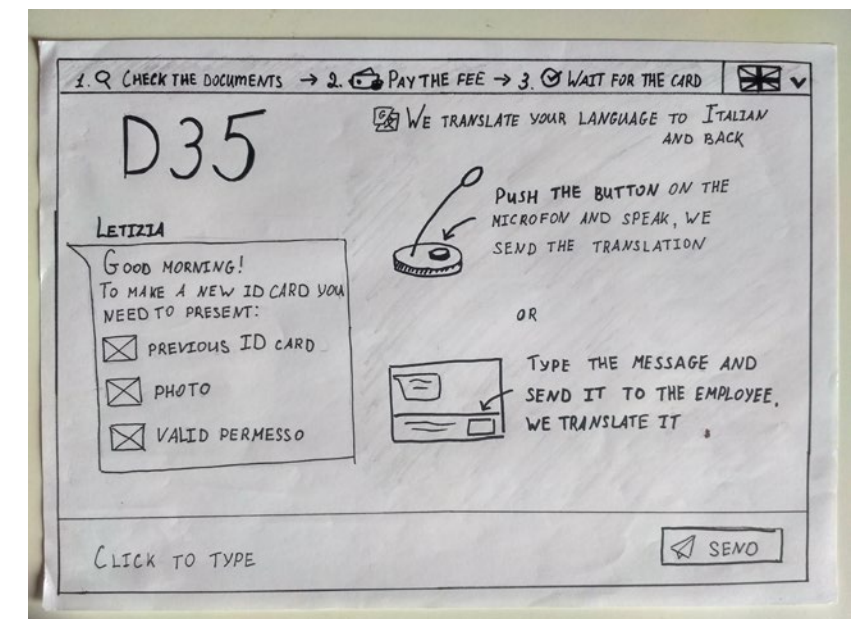 1. CHECK THE DOCUMENTS → 2. PAY THE FEE → 3. WAIT FOR THE CARD
D35
WE TRANSLATE YOUR LANGUAGE TO ITALIAN
AND BACK
LETIZIA
GOOD MORNING!
TO MAKE A NEW ID CARD YOU
NEED TO PRESENT:
PREVIOUS ID CARD
PHOTO
VALID PERMESSO
PUSH THE BUTTON ON THE
MICROFON AND SPEAK, WE
SEND THE TRANSLATION
OR
TYPE THE MESSAGE AND
SEND IT TO THE EMPLOYEE,
WE TRANSLATE IT
CLICK TO TYPE
SEND